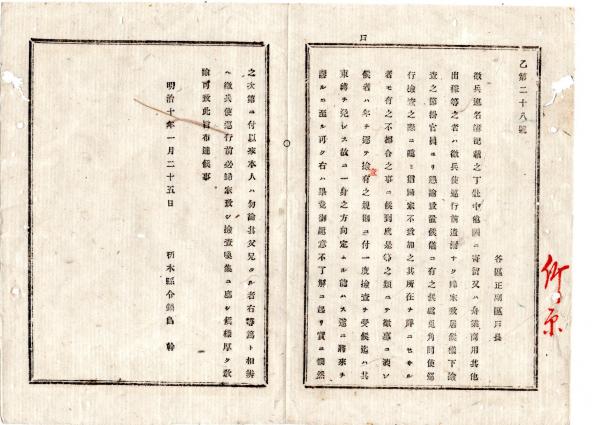 乙第二十八號
各區正副區戸長
徵兵連名簿記載之丁壯中他國ニ寄留又ハ舟業商用其他
出稼等之者ハ徵兵使巡行前遺漏ナク歸家致居候樣下檢
查之節掛官員ヨリ懇諭致置候儀ニ有之候處兎角同使巡
行撿查之際ニ臨ミ猶歸家不致加之其所在ヲ辟ニセサル
者モ有之不都合之事ニ候到底是等之類ユヘ徵募ニ洩レ
候者ハ年ヲ逐テ撿査有之規則ニ付一度撿查ヲ受候迄ハ其
束縛ヲ免レス故ニ一身之方向定ムル能ハス遂ニ將來ヲ
壽ルニ至ル可ク右ハ畢竟御趣意不了解ニ起リ實ニ憫然
之次第ニ付以來本人ハ勿論其父兄タル者右等篤ト相辨
ヘ徵兵使巡行前必歸家致シ撿查喚集ニ應シ候樣厚ク敎
諭可致此旨布達候事
明治十年一月二十五日
栃木縣令鍋島 幹
竹原